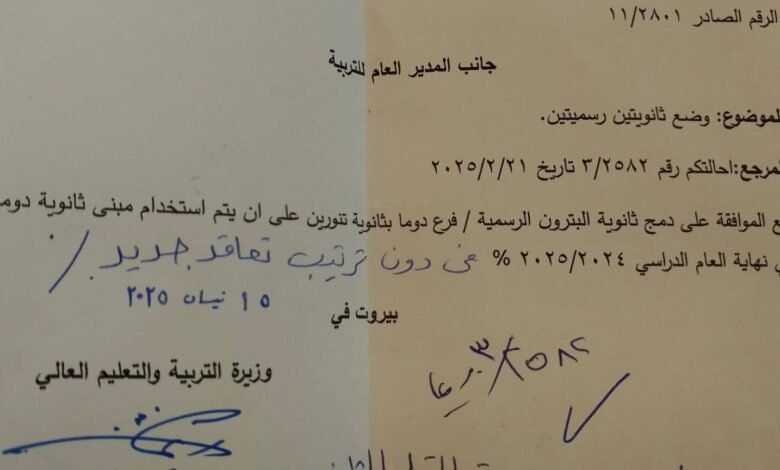 الرقم الصادر ١١/٢٨٠١
جانب المدير العام للتربية
لموضوع: وضع ثانويتين رسميتين.
لمرجع:احالتكم رقم ٣/٢٥٨٢ تاريخ ٢٠٢٥/٢/٢١
ع الموافقة على دمج ثانوية البترون الرسمية / فرع دوما بثانوية تنورين على ان يتم استخدام مبنى ثانوية دوما
ي نهاية العام الدراسي ٢٠٢٥/٢٠٢٤ % دون ترتيب تعاقد جديد /
١٥ نيسان ٢٠٢٥
بيروت في
وزيرة التربية والتعليم العالي
٣/٢٥٨٢